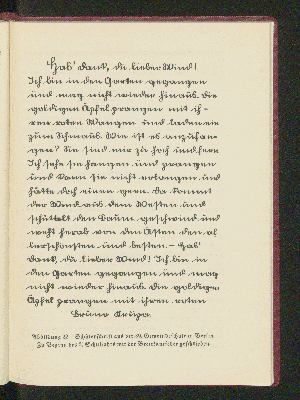 Hab' Dank, du lieber Wind!
Ich bin in den Garten gegangen
und mag nicht wieder hinaus. Die
goldigen Äpfel prangen mit ih-
ren roten Wangen und laden ein
zum Schmaus. Wie ist es anzufan-
gen? Sie sind mir zu hoch und fern.
Ich sehe sie hangen und prangen
und kann sie nicht erlangen und
hätte doch einen gern. Da kommt
der Wind aus dem Westen und
schüttelt den Baum geschwind und
weht herab von den Ästen den al
lerschönsten und besten. – Hab'
Dank, du lieber Wind! Ich bin in
den Garten gegangen und mag
nicht wieder hinaus. Die goldigen
Äpfel prangen mit ihren roten
Bruno Krüga.
Abbildung 22. Schülerschrift aus der Gemeindeschule in Berlin
Zu Beginn des Schuljahres mit der geschrieben.